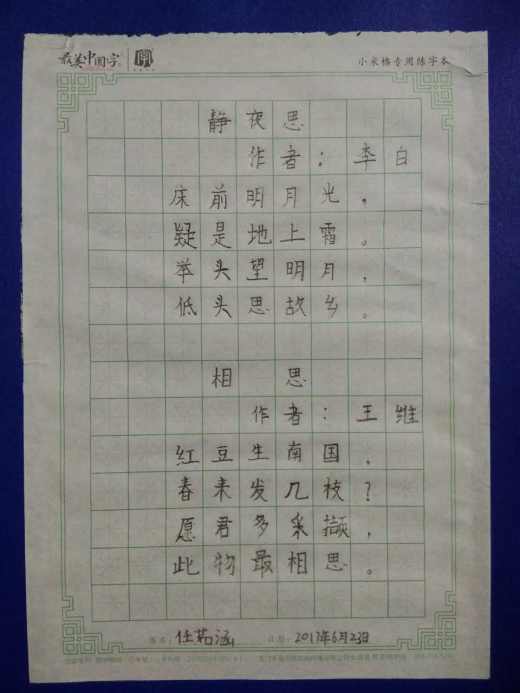 最美中国字
小米格专用练字本
静夜思
作者：李白
床前明月光，
疑是地上霜。
举头望明月，
低头思故乡。
相思
作者：王维
红豆生南国，
春来发几枝？
愿君多采撷，
此物最相思。
姓名：任茹涵 日期：2017年6月23日